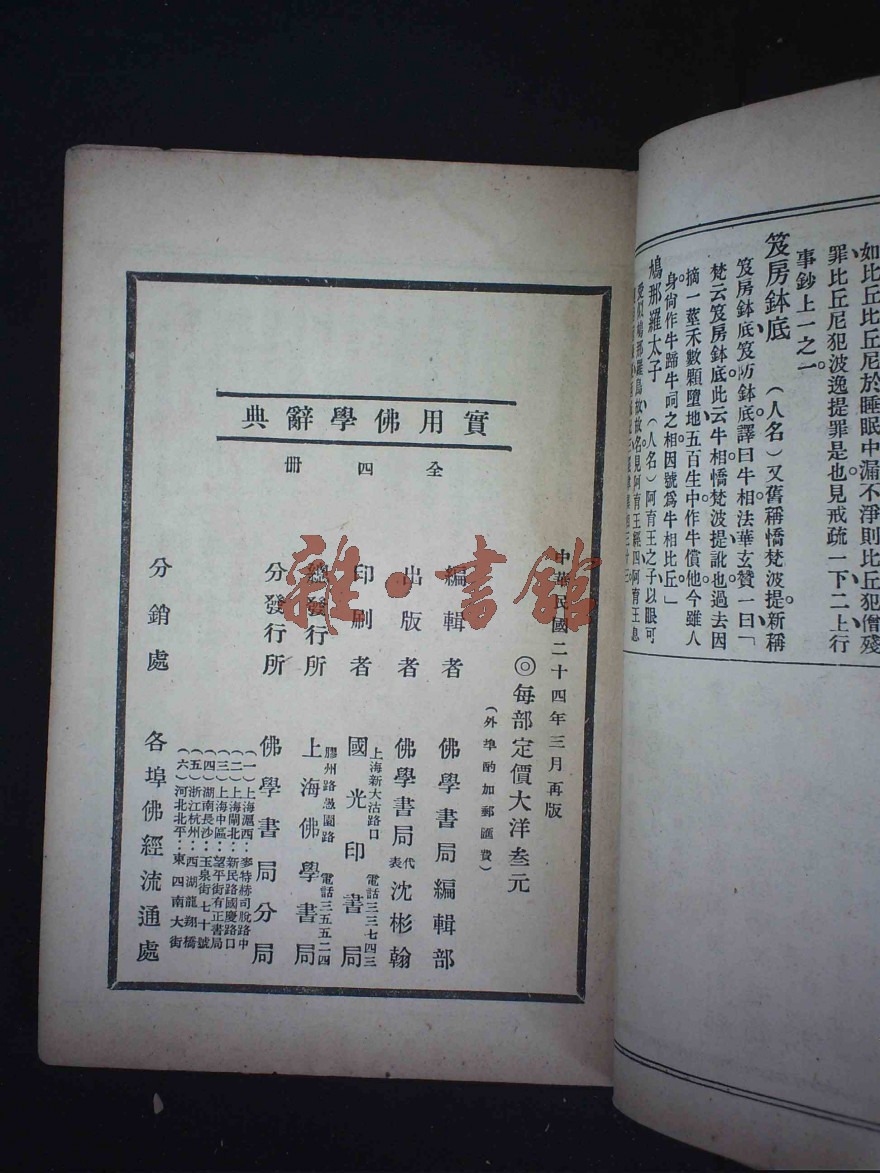 如比丘比丘尼於睡眠中漏不淨則比丘犯僧殘
罪比丘尼犯波逸提罪是也見戒疏一下二上行
事鈔上一之一
笈房鉢底 (人名)又舊稱憍梵波提新稱
笈房鉢底笈防鉢底譯曰牛相法華玄贊一曰「
梵云笈房鉢底此云牛相憍梵波提訛也過去因
摘一莖禾數顆墮地五百生中作牛償他今雖人
身尙作牛蹄牛呞之相因號爲牛相比丘」
鳩那羅太子 (人名)阿育王之子以眼可
愛似鳩那羅鳥故故名見阿育王經四阿育王息
實用佛學辭典
全四册
中華民國二十四年三月再版
◎每部定價大洋叁元
(外埠酌加郵匯費)
編輯者 佛學書局編輯部
出版者 佛學書局代表沈彬翰
上海新大沽路口 電話三三七四三
印刷者 國光印書局
膠州路愚園路 電話三五五二四
總發行所 上海佛學書局
分發行所 佛學書局分局
(一)上海滬西:麥特赫司脫路中
(二)上海閘北:新民路國慶路口
(三)上海中區:望平街有正書局
(四)湖南長沙:玉泉街七十號
(五)浙江杭州:西湖龍翔橋
(六)河北北平:東四南大街
分銷處 各埠佛經流通處
雜·書館